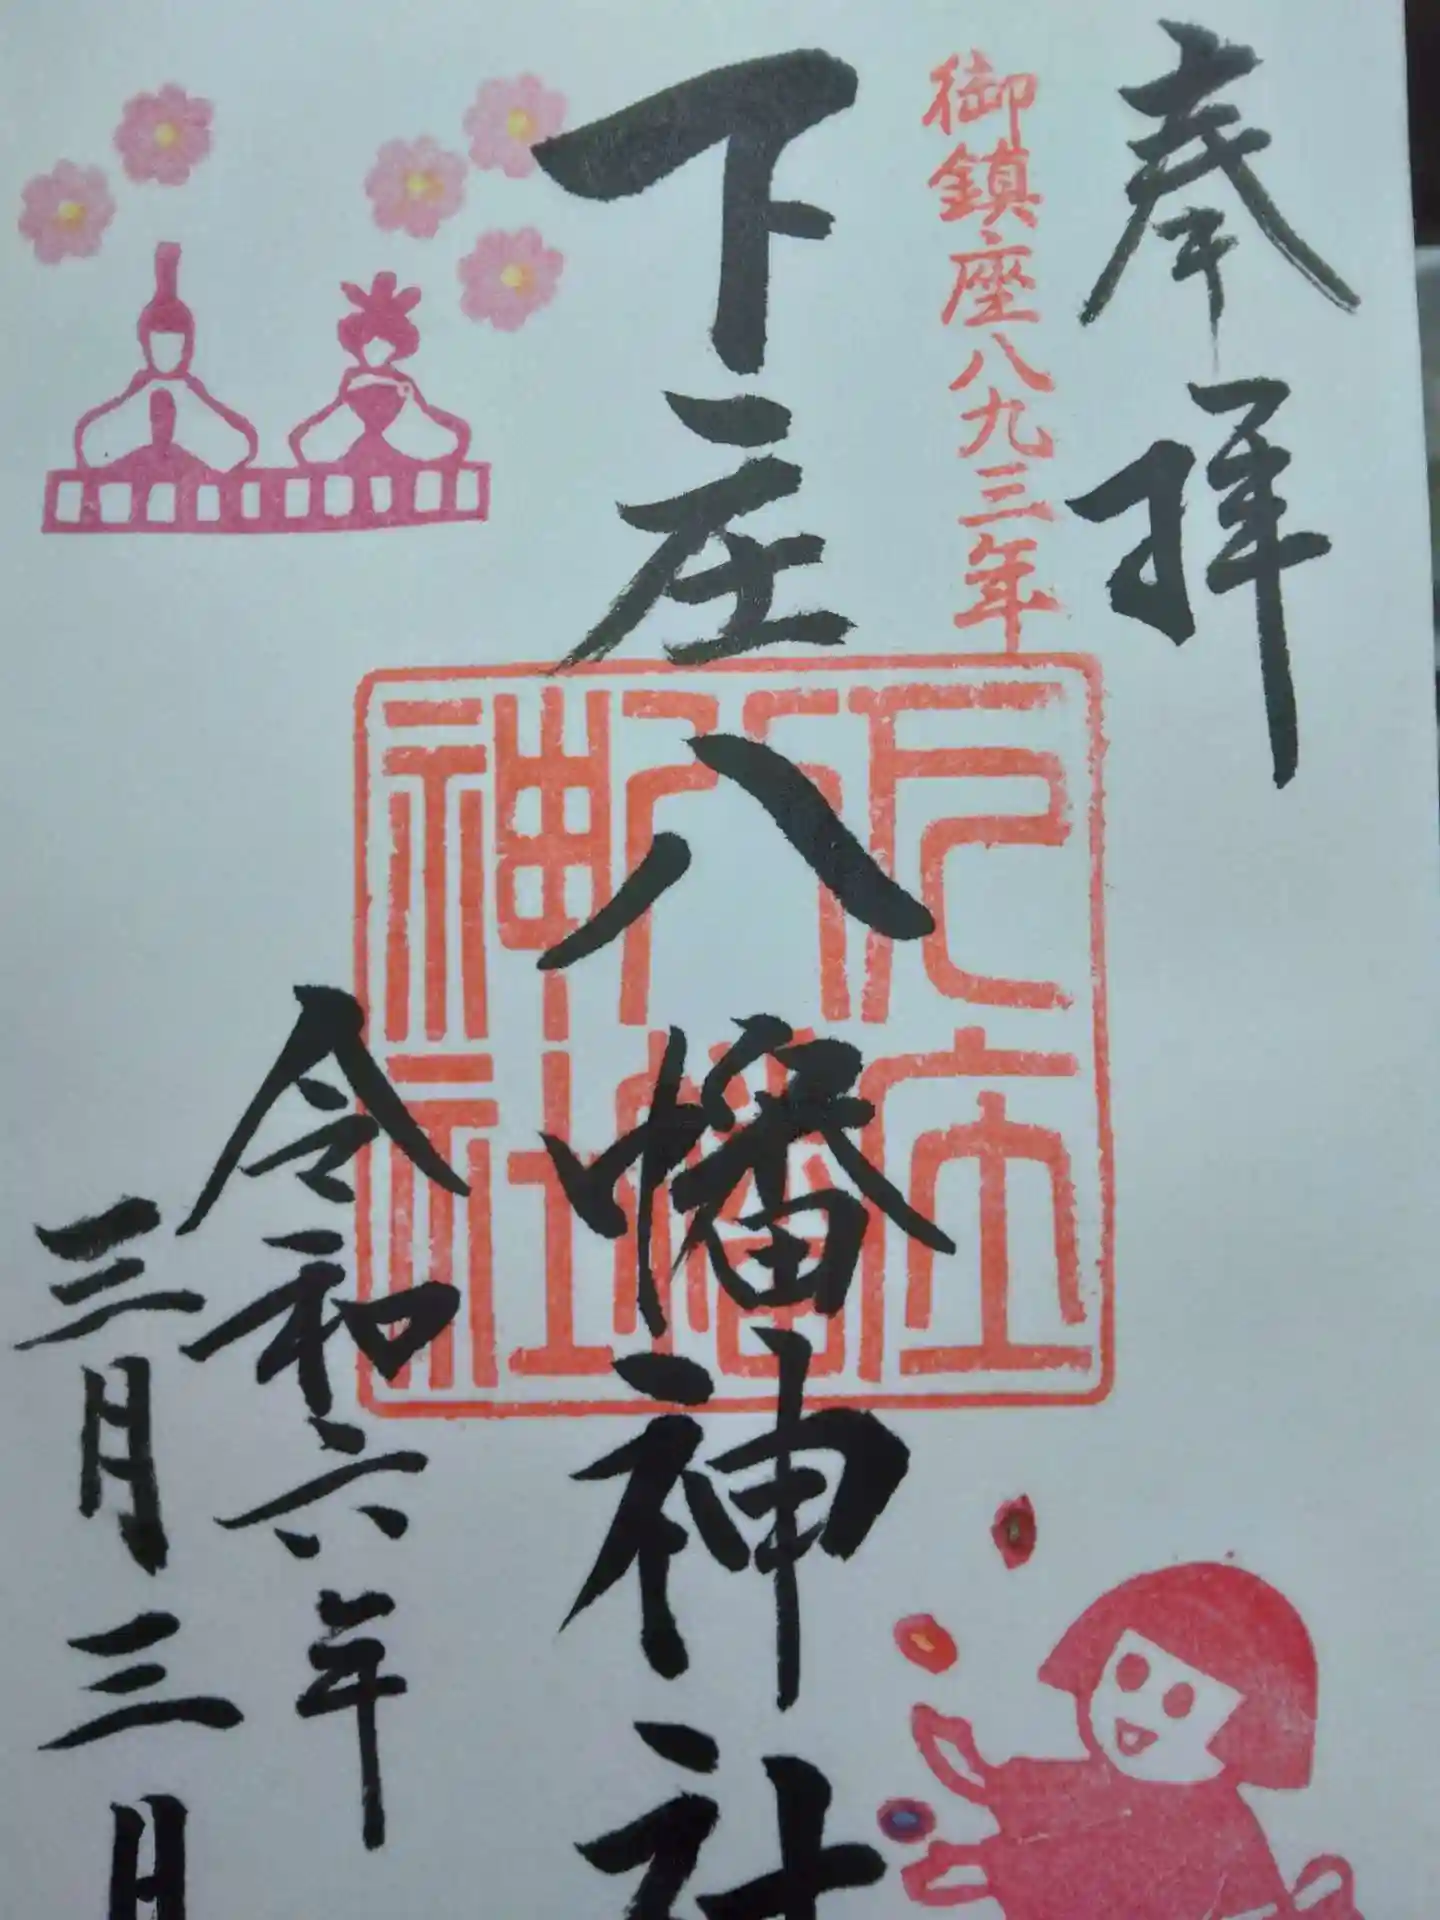 奉拝
御鎮座八九三年
下庄八幡神社
下庄
八幡
神社
令和六年
三月三日